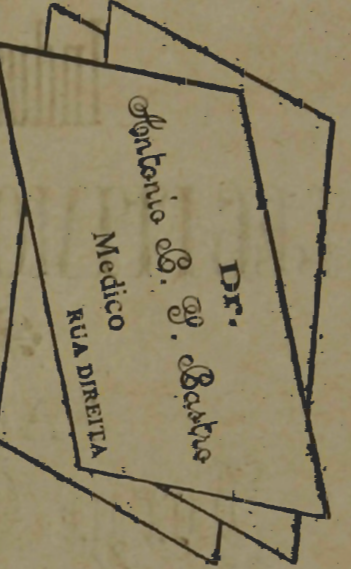 Dr.
Antonio C. Castro
Medico
RUA DIREITA